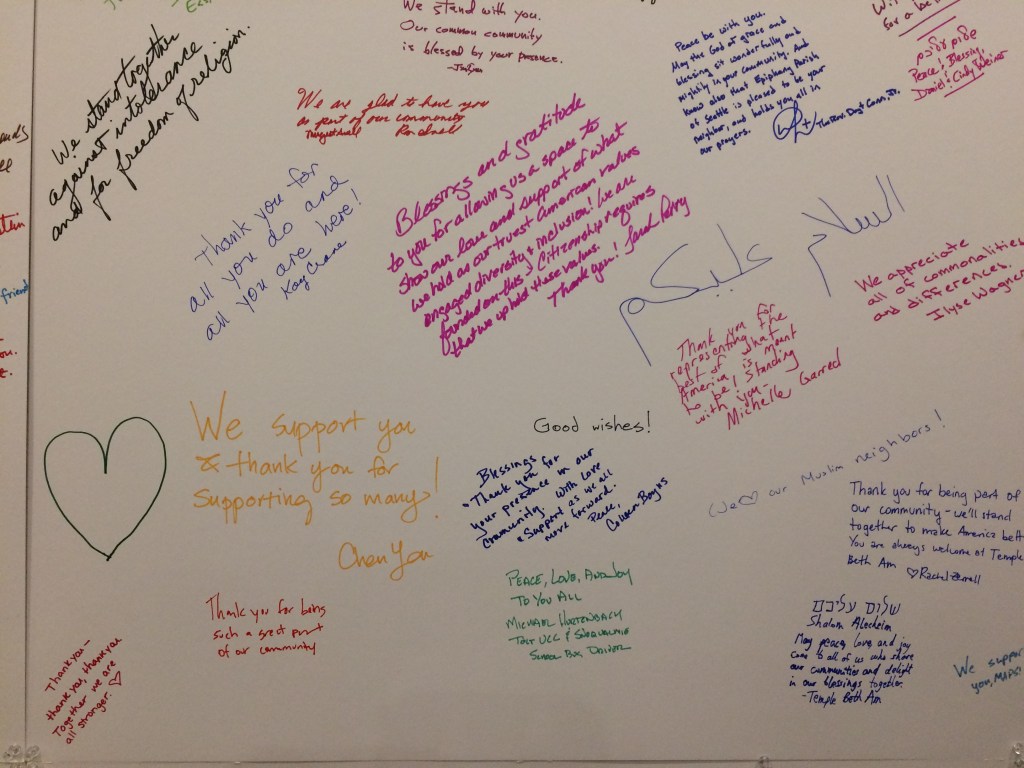 We stand together
against intolerance
and for freedom of religion.
We stand with you.
Our common community
is blessed by your presence.
We are glad to have you
as part of our community
Peace be with you.
May the God of grace and
blessing sit wonderfully and
mightily in your community. And
know also that Epiphany Parish
of Seattle is pleased to be your
neighbor, and holds you all in
our prayers.
שלום עליכם
Peace! Blessing
Daniel & Cindy Weiner
Thank you for
all you do and
all you are here!
Kay Crane
Blessings and gratitude
to you for allowing us a space to
show our love and support of what
we hold as our truest American values
engaged diversity & inclusion! We are
founded on this & Citizenship requires
that we uphold these values.
Thank you! Sarah Perry
السلام عليكم
We appreciate
all of commonalities
and differences.
Ilyse Wagner
Thank you for
representing the
best of what
America is meant
to be! Standing
with you -
Michelle Garred
friend
We support you
& thank you for
supporting so many!
Chen You
Good wishes!
Blessings
Thank you for
your presence in our
community. With love
& support as we all
move forward.
Peace,
We ♡ our Muslim neighbors!
Thank you for being part of
our community - we'll stand
together to make America
You are always welcome at Temple
Beth Am ♡ Rachel
Peace, Love, And Joy
To You All
Michael
Tolt UCC &
School Bus Driver
Thank you for being
such a great part
of our community
שלום עליכם
Shalom Aleichem
May peace, love and joy
come to all of us who share
our communities and delight
in our blessings together.
-Temple Beth Am
We support
you, MAPS!
Thank you -
thank you, thank you
Together we are
all stronger. ♡